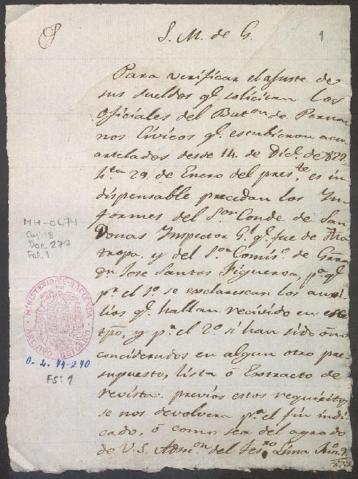 S. M. de G.
1
Para verificar el ajuste de
sus sueldos q.e solicitan los
Oficiales del Bat.on de Perua
nos Civicos q.e estubieron acu
artelados desde 14. de Dic.e de 822
h.ta 29. de Enero del pres.te es in
dispensable precedan los In
formes del S.or Conde de San
Donas Inspector G.l q.e fue de
y del S.or Comis.o de Guerra
D.n Jose Santos Figueroa, p.a q.e
p.r el 1.o se esclarescan los aux
lios q.e hallan recivido en este
tpo, y p.r el 2.o si han sido ó no
considerados en algun otro pre
supuesto, lista ó Extracto de
revista. previos estos requisitos
se nos devolvera p.a el fin indi
cado, ó como sea del agrado
de V.S. Adm.on del Tes.ro Lima
MH-OL71
Caj. 18
Doc. 277
Fol. 1
MINISTERIO DE HACIENDA
O.L. 71-270
FS: 1